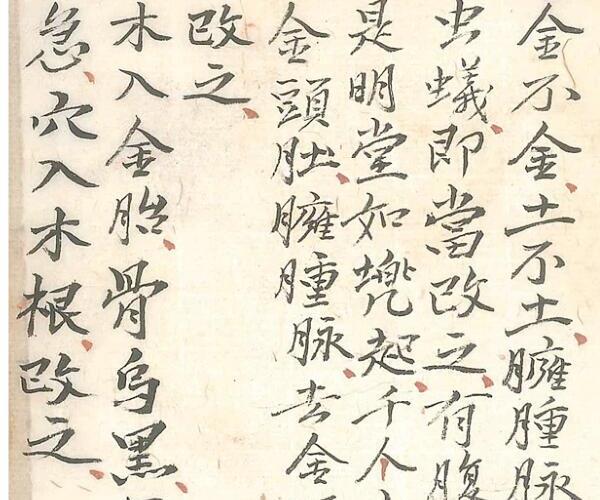 金不金、土不土、臃腫脉
虫蟻、即當改之、有腹
是明堂如堯起、千人
金頭肚、臃腫脉、去金
改之、
木入金胎、骨烏黑、
急、穴入木根、改之、